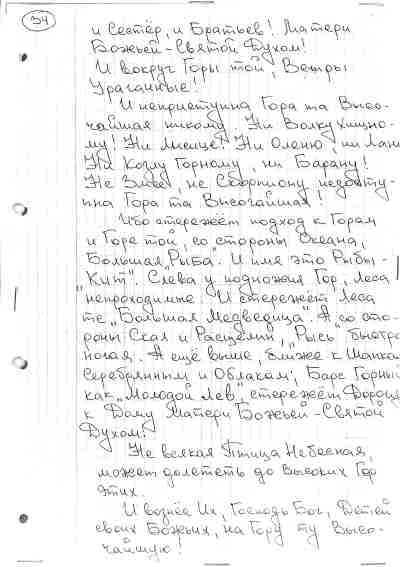 34
и Сестёр, и Братьев! Матери
Божьей - Святой Духом!
И вокруг Горы той, Ветры
Ураганные!
И неприступна Гора та Высо-
чайшая никому. Ни Волку Хищно-
му! Ни Ни Оленю, ни Лани
Ни Козлу Горному, ни Барану!
Не Змее, не Скорпиону недосту-
пна Гора та Высочайшая!
Ибо стережёт подход к Горам
и Горе той, со стороны Океана,
Большая "Рыба". И имя это Рыбы -
"Кит". Слева у подножия Гор, Леса
непроходимые. И стережёт Леса
те "Большая Медведица". А со сто-
роны Скал и Расщелин, "Рысь" быстро-
ногая. А ещё выше, ближе к Шапкам
Серебрянным и Облакам, Барс Горный
как "Молодой Лев", стережёт Дорогу
к Дому Матери Божьей - Святой
Духом!
Не всякая Птица Небесная,
может долететь до высоких Гор
этих.
И вознёс Их, Господь Бог, Детей
своих Божьих, на Гору ту Высо-
чайшую!